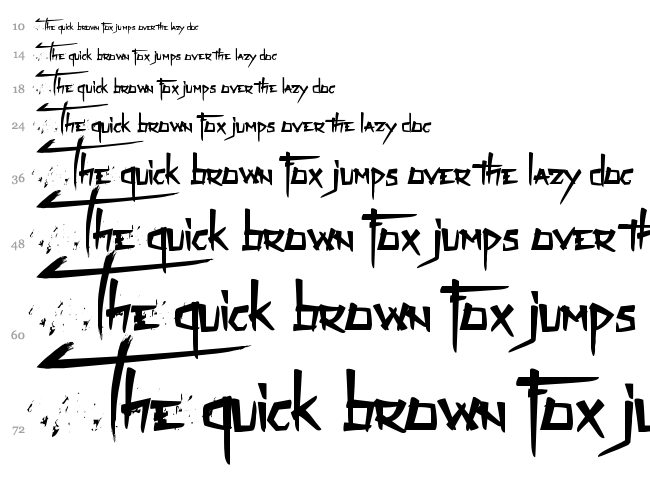 10 The quick brown fox jumps over the lazy doc
14 The quick brown fox jumps over the lazy doc
18 The quick brown fox jumps over the lazy doc
24 The quick brown fox jumps over the lazy doc
36 The quick brown fox jumps over the lazy doc
48 The quick brown fox jumps over th
60 The quick brown fox jumps
72 The quick brown fox ju